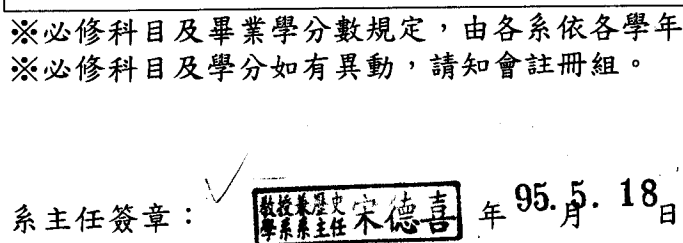 ※必修科目及畢業學分數規定，由各系依各學年
※必修科目及學分如有異動，請知會註冊組。
系主任簽章： 教授兼歷史學系系主任 宋德喜 年 95.5.18 月 日